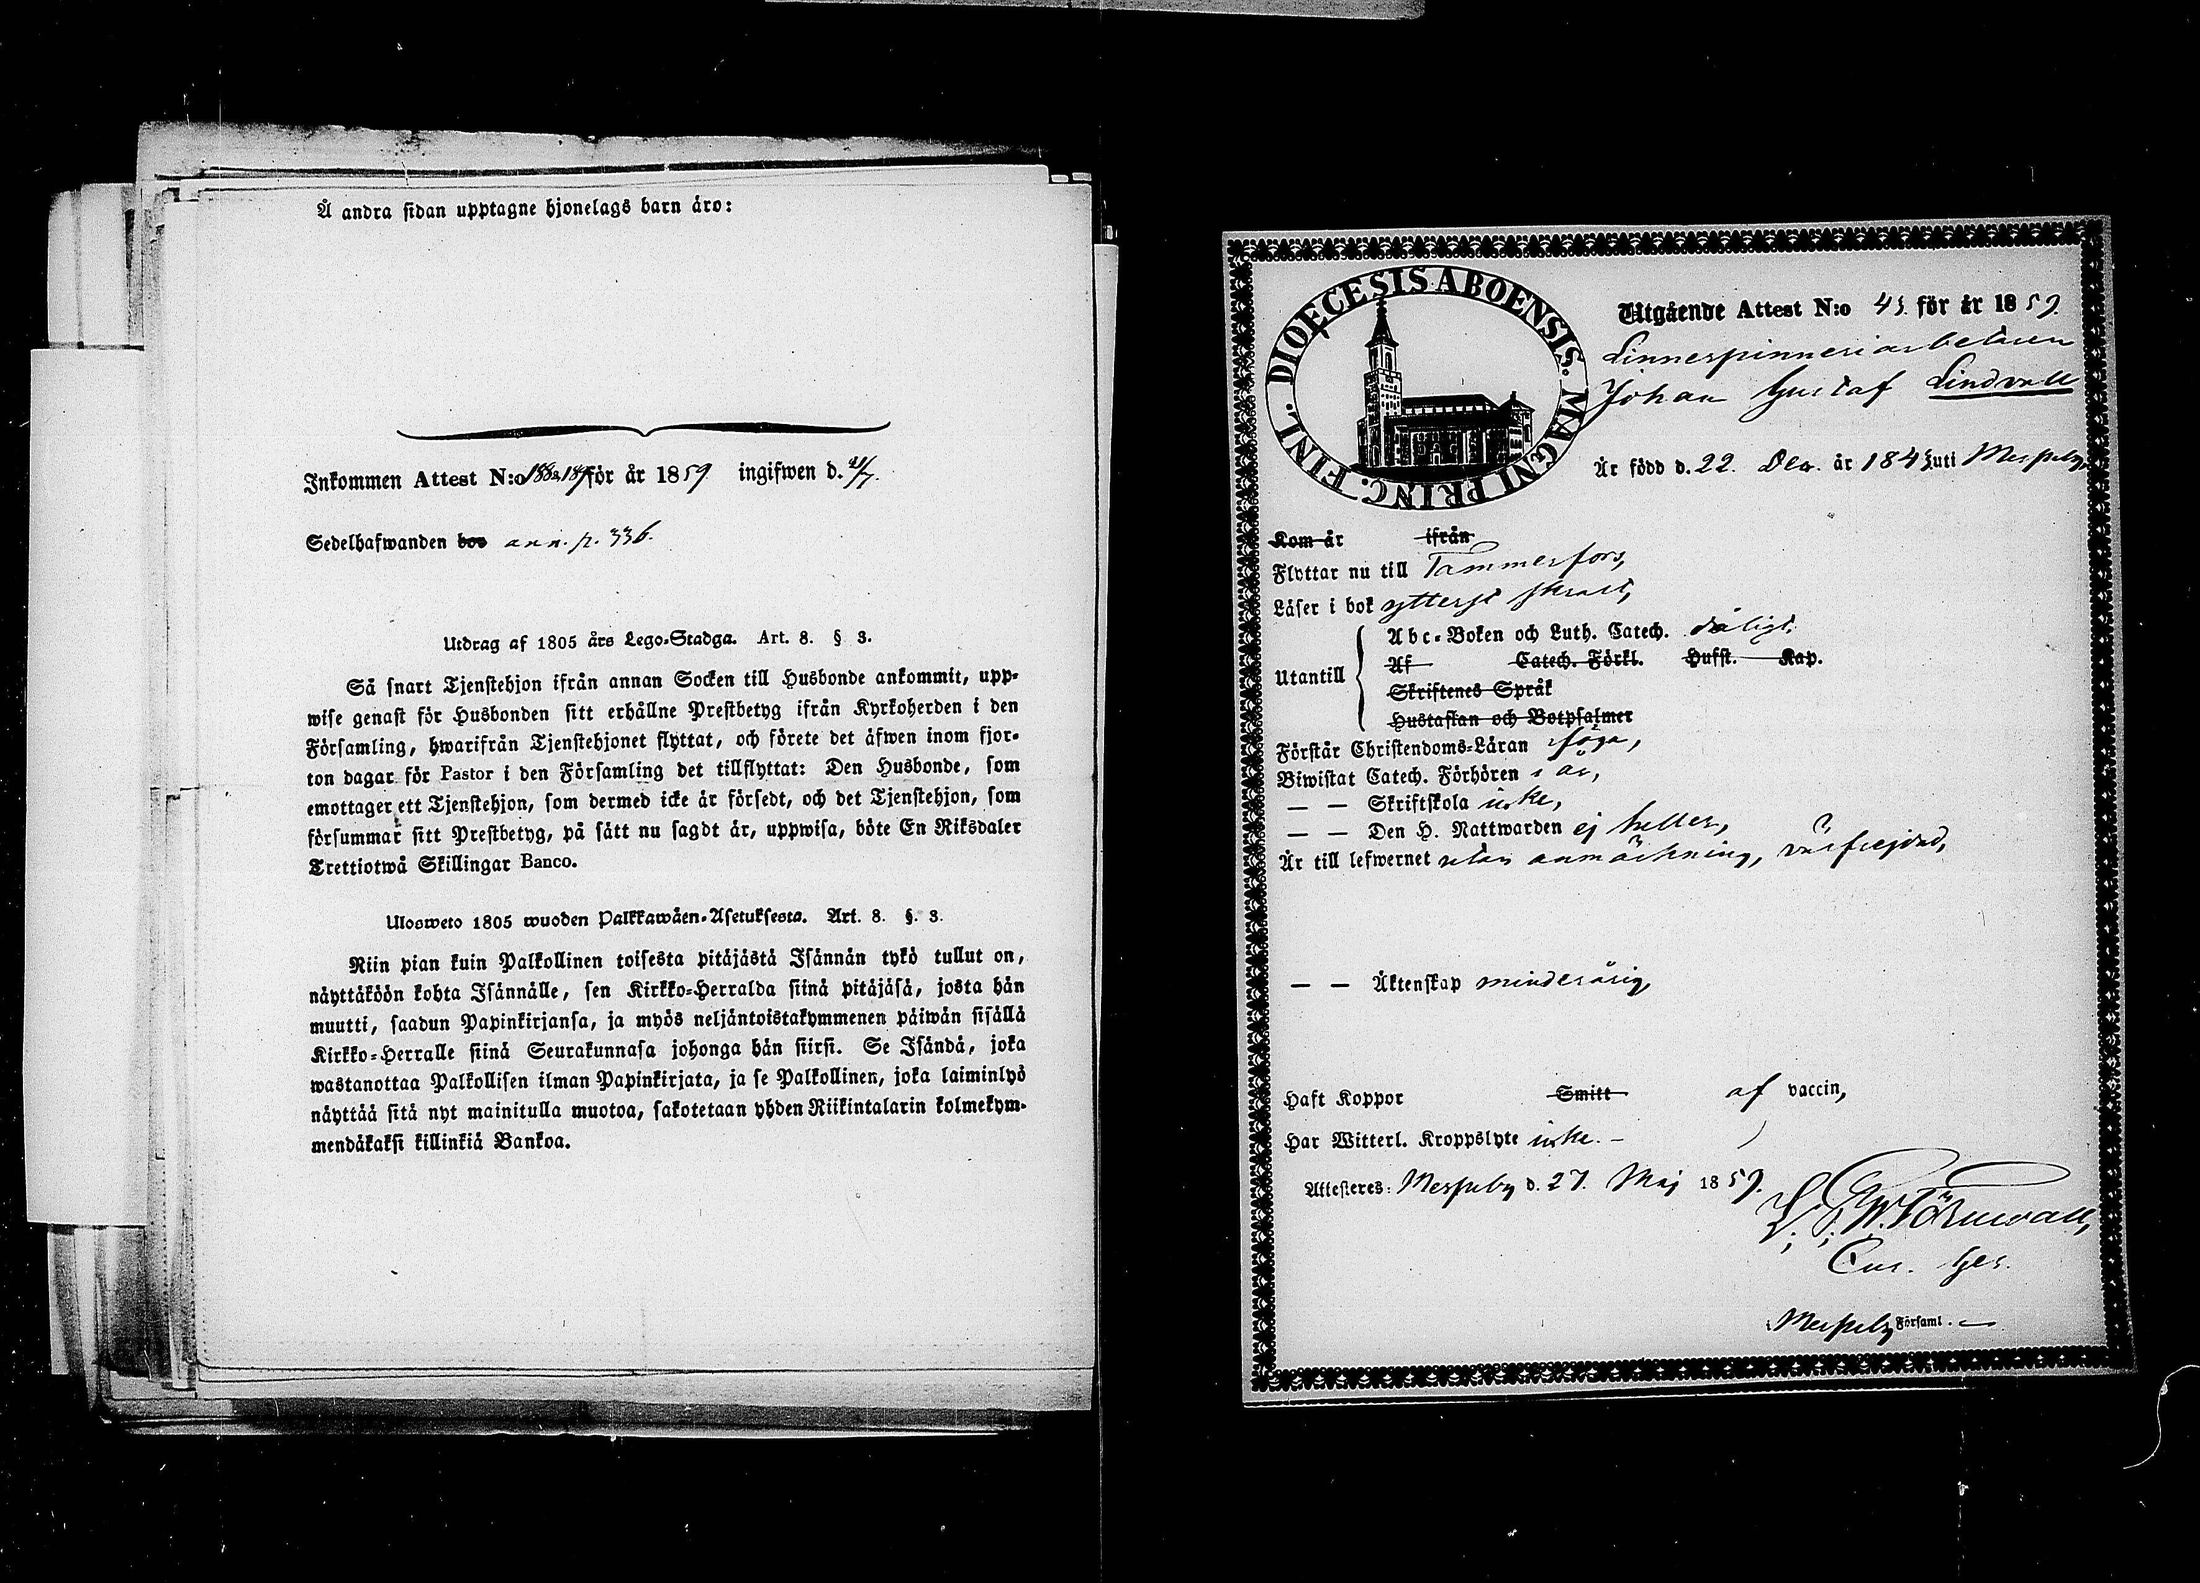 Å andra sidan upptagne hjonelags barn äro:
Inkommen Attest N:o 188 & 189 för år 1859 ingifwen d. 21/7.
Sedelhafwanden hos ann. p. 336.
Utdrag af 1805 års Lego-Stadga. Art. 8. § 3.
Så snart Tjenstehjon ifrån annan Socken till Husbonde ankommit, upp-
wise genast för Husbonden sitt erhållne Prestbetyg ifrån Kyrkoherden i den
Församling, hwarifrån Tjenstehjonet flyttat, och förete det äfwen inom fjor-
ton dagar för Pastor i den Församling det tillflyttat: Den Husbonde, som
emottager ett Tjenstehjon, som dermed icke är försedt, och det Tjenstehjon, som
försummar sitt Prestbetyg, på sätt nu sagdt är, uppwisa, böte En Riksdaler
Trettiotwå Skillingar Banco.
Ulosweto 1805 wuoden Palkkawäen-Asetuksesta. Art. 8. §. 3.
Niin pian kuin Palkollinen toisesta pitäjästä Isännän tykö tullut on,
näyttäköön kohta Isännälle, sen Kirkko-Herralda siinä pitäjäsä, josta hän
muutti, saadun Papinkirjansa, ja myös neljäntoistakymmenen päiwän sisällä
Kirkko-Herralle siinä Seurakunnasa johonga hän siirsi. Se Isändä, joka
wastanottaa Palkollisen ilman Papinkirjata, ja se Palkollinen, joka laiminlyö
näyttää sitä nyt mainitulla muotoa, sakotetaan yhden Riikintalarin kolmekym-
mendäkaksi killinkiä Bankoa.
DIOECESIS ABOENSIS. MAGNI PRINC. FINL.
Utgående Attest N:o 45. för år 1859.
Linnespinneriarbetaren
Johan Gustaf Lindvall
Är född d. 22. Dec. år 1843 uti Messuby,
Kom år ifrån
Flyttar nu till Tammerfors,
Läser i bok ytterst svagt,
Utantill
Abc-Boken och Luth. Catech. dåligt.
Af Catech. Förkl. Hufst. Kap.
Skriftenes Språk
Hustaflan och Botpsalmer
Förstår Christendoms-Läran föga,
Biwistat Catech. Förhören i år,
— — Skriftskola icke,
— — Den H. Nattwarden ej heller,
Är till lefwernet utan anmärkning, välfrejdad,
— — Äktenskap minderårig,
Haft Koppor Smitt af vaccin,
Har Witterl. Kroppslyte icke. –
Attesteres: Messuby d. 27. Maj 1859.
W. Törnwall,
Messuby Församl.